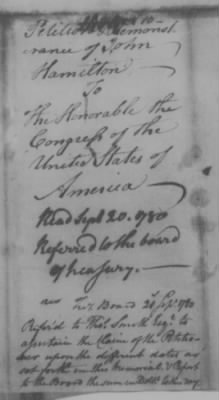 Petition & Remonst-
rance of John
Hamilton
To
The Honorable the
Congress of the
United States of
America
Read Sept 20. 1780
Referred to the board
of treasury.
Board 20 Sept. 1780
Refer'd to Thos. Smith Esqr. to
ascertain the Claim of the Petitio-
ner upon the different dates as
set forth in this Memorial & Report
to the Board the sum in